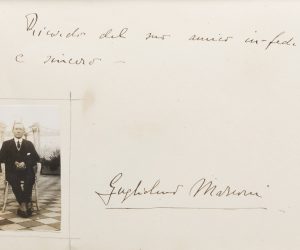 Ricordo del suo amico
e sincero –
Guglielmo Marconi